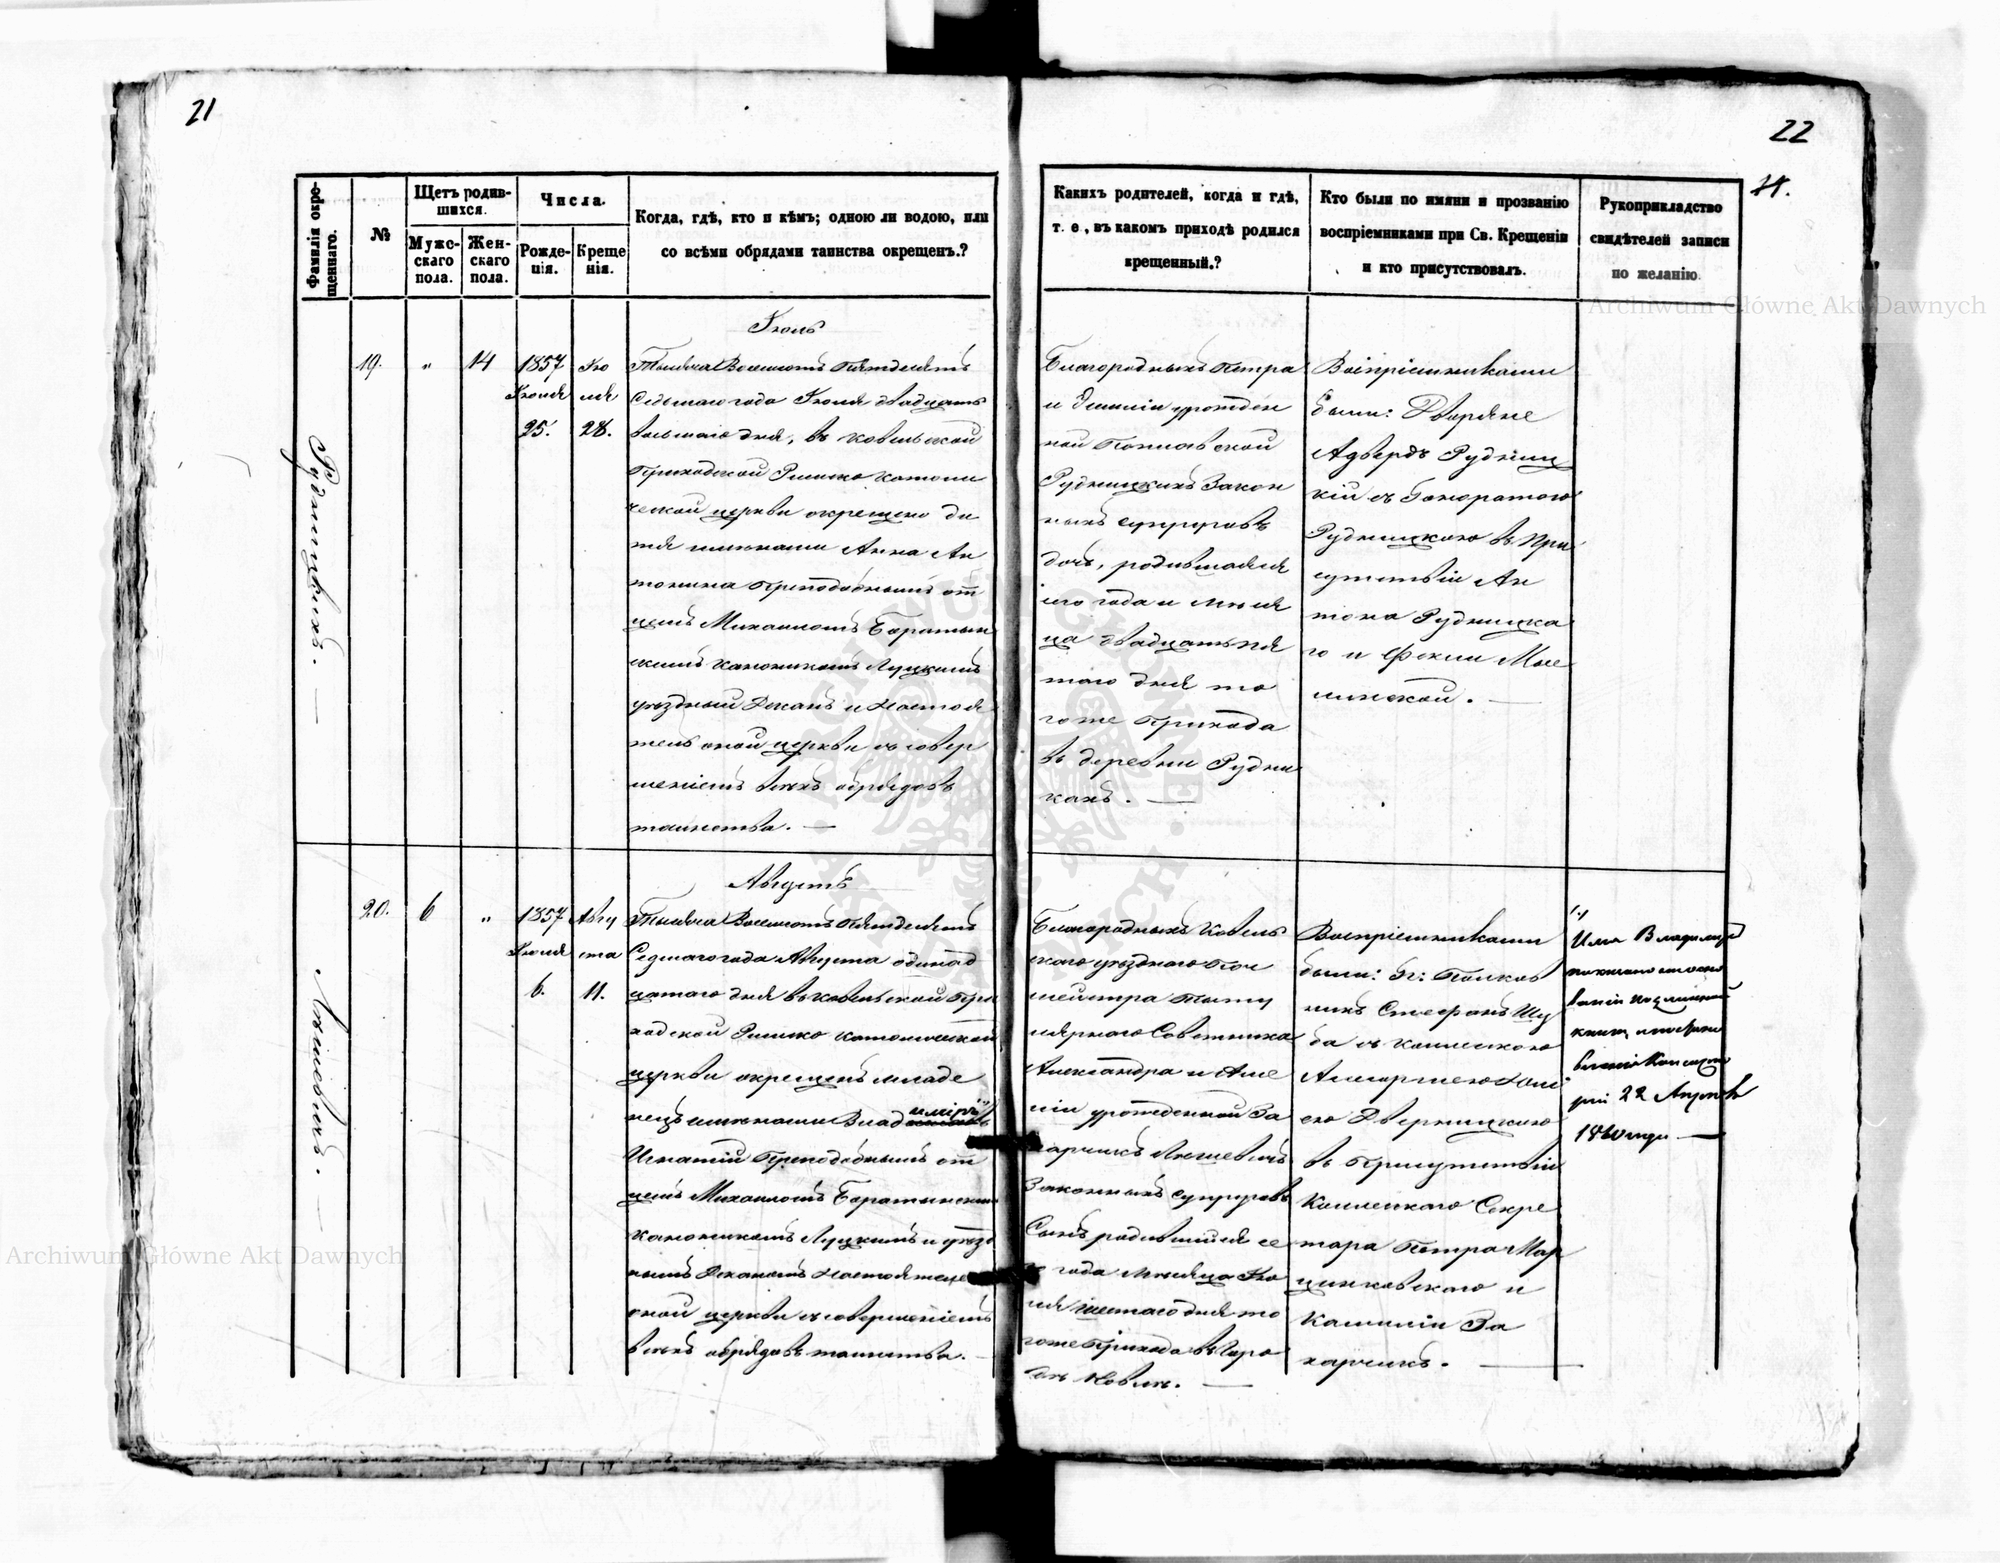 21
22
11.
Фамилія окре-
щеннаго.
№
Щетъ родив-
шихся.
Мужс-
скаго
пола.
Жен-
скаго
пола.
Числа.
Рожде-
нія.
Креще
нія.
Когда, гдѣ, кто и кѣмъ; одною ли водою, или
со всѣми обрядами таинства окрещенъ.?
Каких родителей, когда и гдѣ,
т. е., въ какомъ приходѣ родился
крещенный.?
Кто были по имяни и прозванію
воспріемниками при Св. Крещеніи
и кто присутствовалъ.
Рукоприкладство
свидѣтелей записи
по желанію.
Рудницкихъ. —
19.
"
14
1857
Іюля
25.
Ию
ля
28.
Іюль
Тысяча Восемсотъ Пятдесятъ
Седьмаго года Іюля двадцать
восьмаго дня, въ Ковельской
Приходской Римско католи
ческой церкви окрещено ди
тя именами Анна Ан
тонина Преподобнымъ от
цемъ Михаиломъ Баратын
скимъ каноникомъ Луцкимъ
уѣздный Деканъ и Настоя
тель оной церкви съ совер
шеніемъ всѣхъ обрядовъ
таинства. —
Благородныхъ Петра
и урожден
ной
Рудницкихъ Закон
ныхъ супруговъ
дочь, родившаяся
сего года и мѣся
ца двадцать пя
таго дня то
гоже Прихода
въ деревни Рудни
кахъ. —
Воспріемниками
были: Дворяне
Адвердъ Рудниц
кій съ Гоноратою
Рудницкою въ При
сутствіи Ан
тона Рудницка
го и Феклы Мы
слинской. —
Ляшевичъ. —
20.
6
"
1857
Іюля
6.
Авгу
ста
11.
Августъ
Тысяча Восемсотъ Пятдесятъ
Седмаго года Августа одинад
цатаго дня въ Ковельской При
ходской Римско католической
церкви окрещенъ младе
нецъ именами Влад
иміръ
Игнатій Преподобнымъ от
цемъ Михаиломъ Баратынским
каноникомъ Луцкимъ и уѣзд
нымъ Деканомъ Настоятеле
оной церкви съ совершеніемъ
всѣхъ обрядовъ таинства. —
Благородныхъ Ковель
скаго уѣзднаго Поч
мейстра Титу
лярнаго Совѣтника
Александра и Эми
ліи урожденной За
харчикъ Ляшевичъ
Законныхъ супруговъ
Сынъ родившійся се
го года мѣсяца Ию
ля шестаго дня то
гоже Прихода въ Горо
дѣ Ковелѣ. —
Воспріемниками
были: Гг: Полков
никъ Стефанъ Шу
ба съ Коллежскою
Дверницкою
въ Присутствіи
Коллежскаго Секре
таря Петра Мар
цинковскаго и
Камилліи За
харчикъ. —
1.)
Имя Владиміръ
на осно
ваніи подлинной
книги
Консисто
ріи 22 Апрѣля
1860 года —
Archiwum Główne Akt Dawnych
Archiwum Główne Akt Dawnych
ARCHIWUM GŁÓWNE AKT DAWNYCH